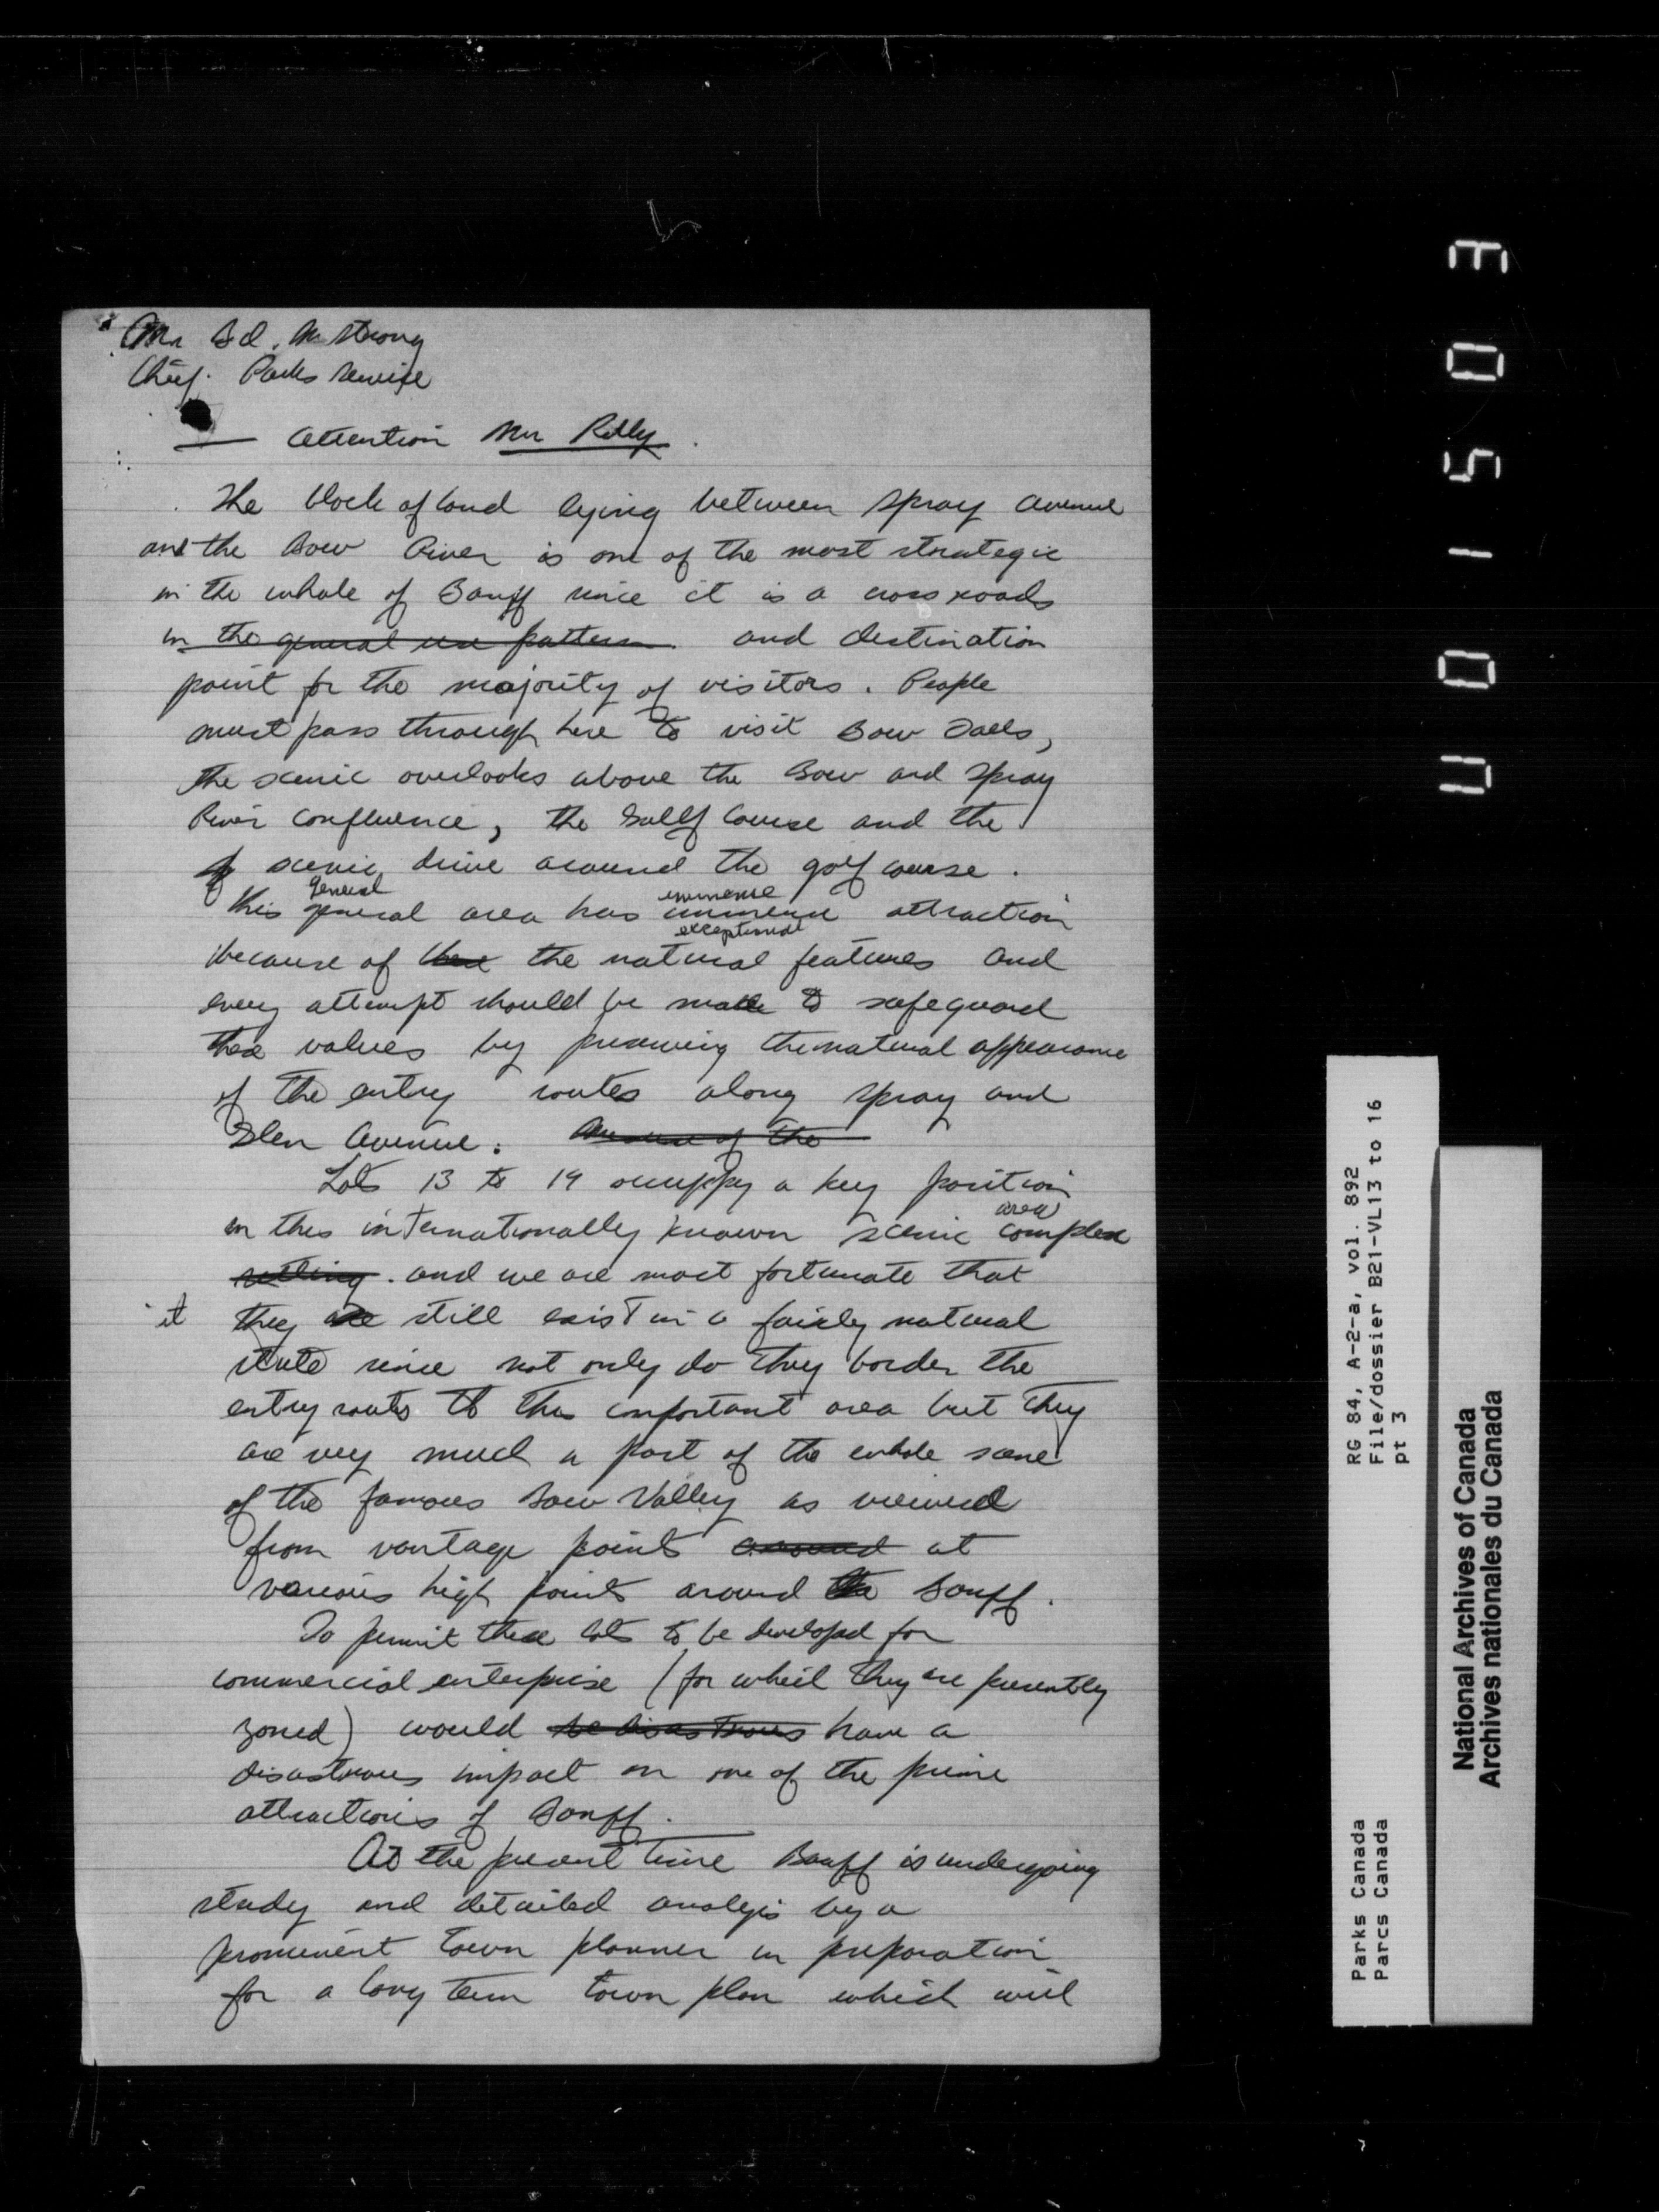 Mr Ed. Mr Strong
Chief. Parks Service
Attention Mr Reilly.
The block of land lying between Spray Avenue
and the Bow River is one of the most strategic
in the whole of Banff since it is a cross roads
in the general use pattern and destination
point for the majority of visitors. People
must pass through here to visit Bow Falls,
The scenic overlooks above the Bow and Spray
River confluence, the Gollf Course and the
scenic drive around the golf course.
general immense
This general area has immense attraction
exceptional
because of these the natural features and
every attempt should be made to safeguard
these values by preserving the natural appearance
of the entry routes along Spray and
Glen Avenue. of the
Lots 13 to 19 occuppy a key position
area
in this internationally known scenic complex
setting. and we are most fortunate that
it they are still exist in a fairly natural
state since not only do they border the
entry routes to this important area but they
are very much a part of the whole scene
of the famous Bow Valley as viewed
from vantage points around at
various high points around the Banff.
To permit these lots to be developed for
commercial enterprise (for which they are presently
zoned) would be disastrous have a
disastrous impact on one of the prime
attractions of Banff.
At the present time Banff is undergoing
study and detailed analysis by a
prominent town planner in preparation
for a long term town plan which will
U 0 1 5 0 3
RG 84, A-2-a, vol. 892
File/dossier B21-VL13 to 16
pt 3
Parks Canada
Parcs Canada
National Archives of Canada
Archives nationales du Canada